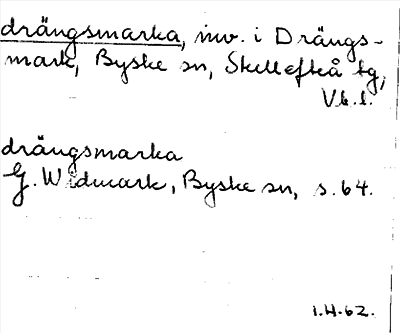 drängsmarka, inv. i Drängs-
mark, Byske sn, Skellefteå tg,
Vb.l.
drängsmarka
G. Widmark, Byske sn, s. 64.
1.H.62.